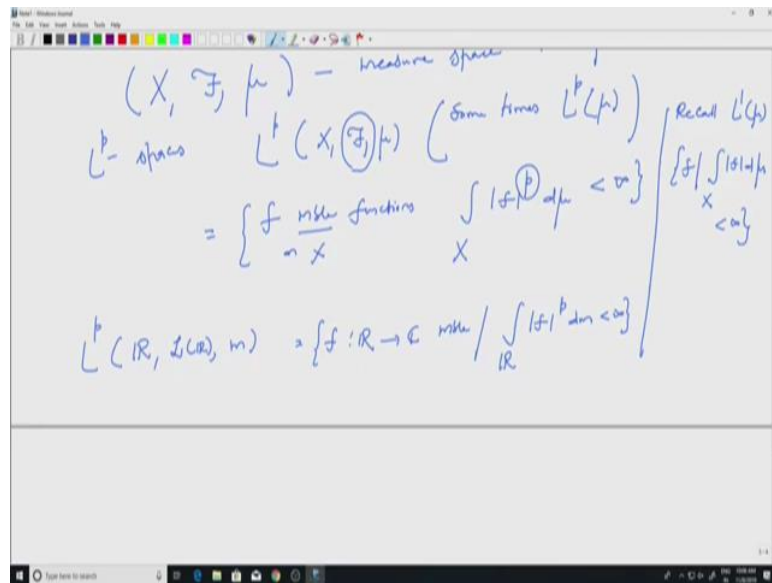 Note1 - Windows Journal
File Edit View Insert Actions Tools Help
(X, F, μ) - measure space
L^p - spaces L^p (X, F, μ) (Some times L^p(μ))
= { f mble functions on X ∫_X |f|^p dμ < ∞ }
Recall L^1(μ)
{ f | ∫_X |f| dμ
< ∞ }
L^p (IR, L(IR), m) = { f : IR → C mble / ∫_IR |f|^p dm < ∞ }
Type here to search